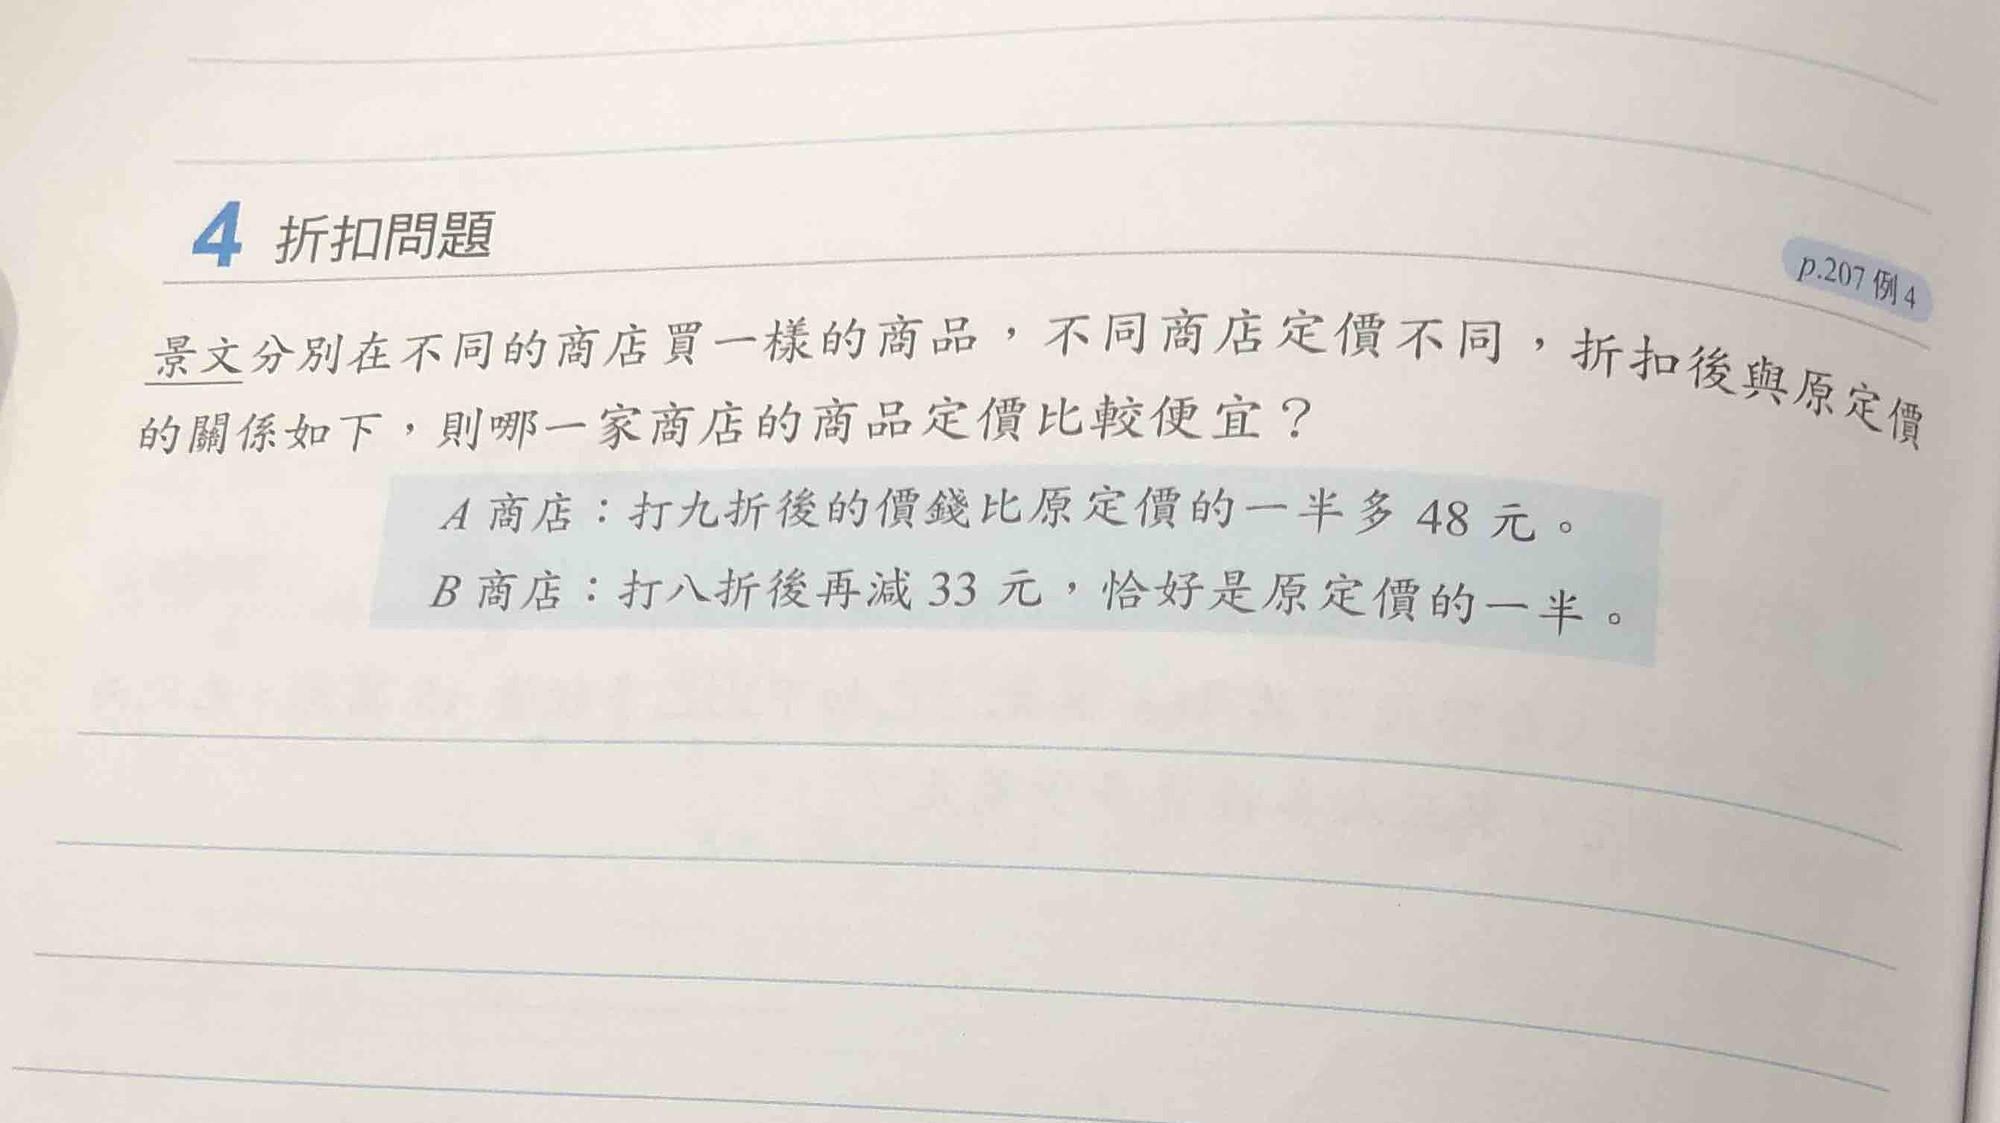 4 折扣問題
p.207 例4
景文分別在不同的商店買一樣的商品，不同商店定價不同，折扣後與原定價
的關係如下，則哪一家商店的商品定價比較便宜？
A 商店：打九折後的價錢比原定價的一半多 48 元。
B 商店：打八折後再減 33 元，恰好是原定價的一半。